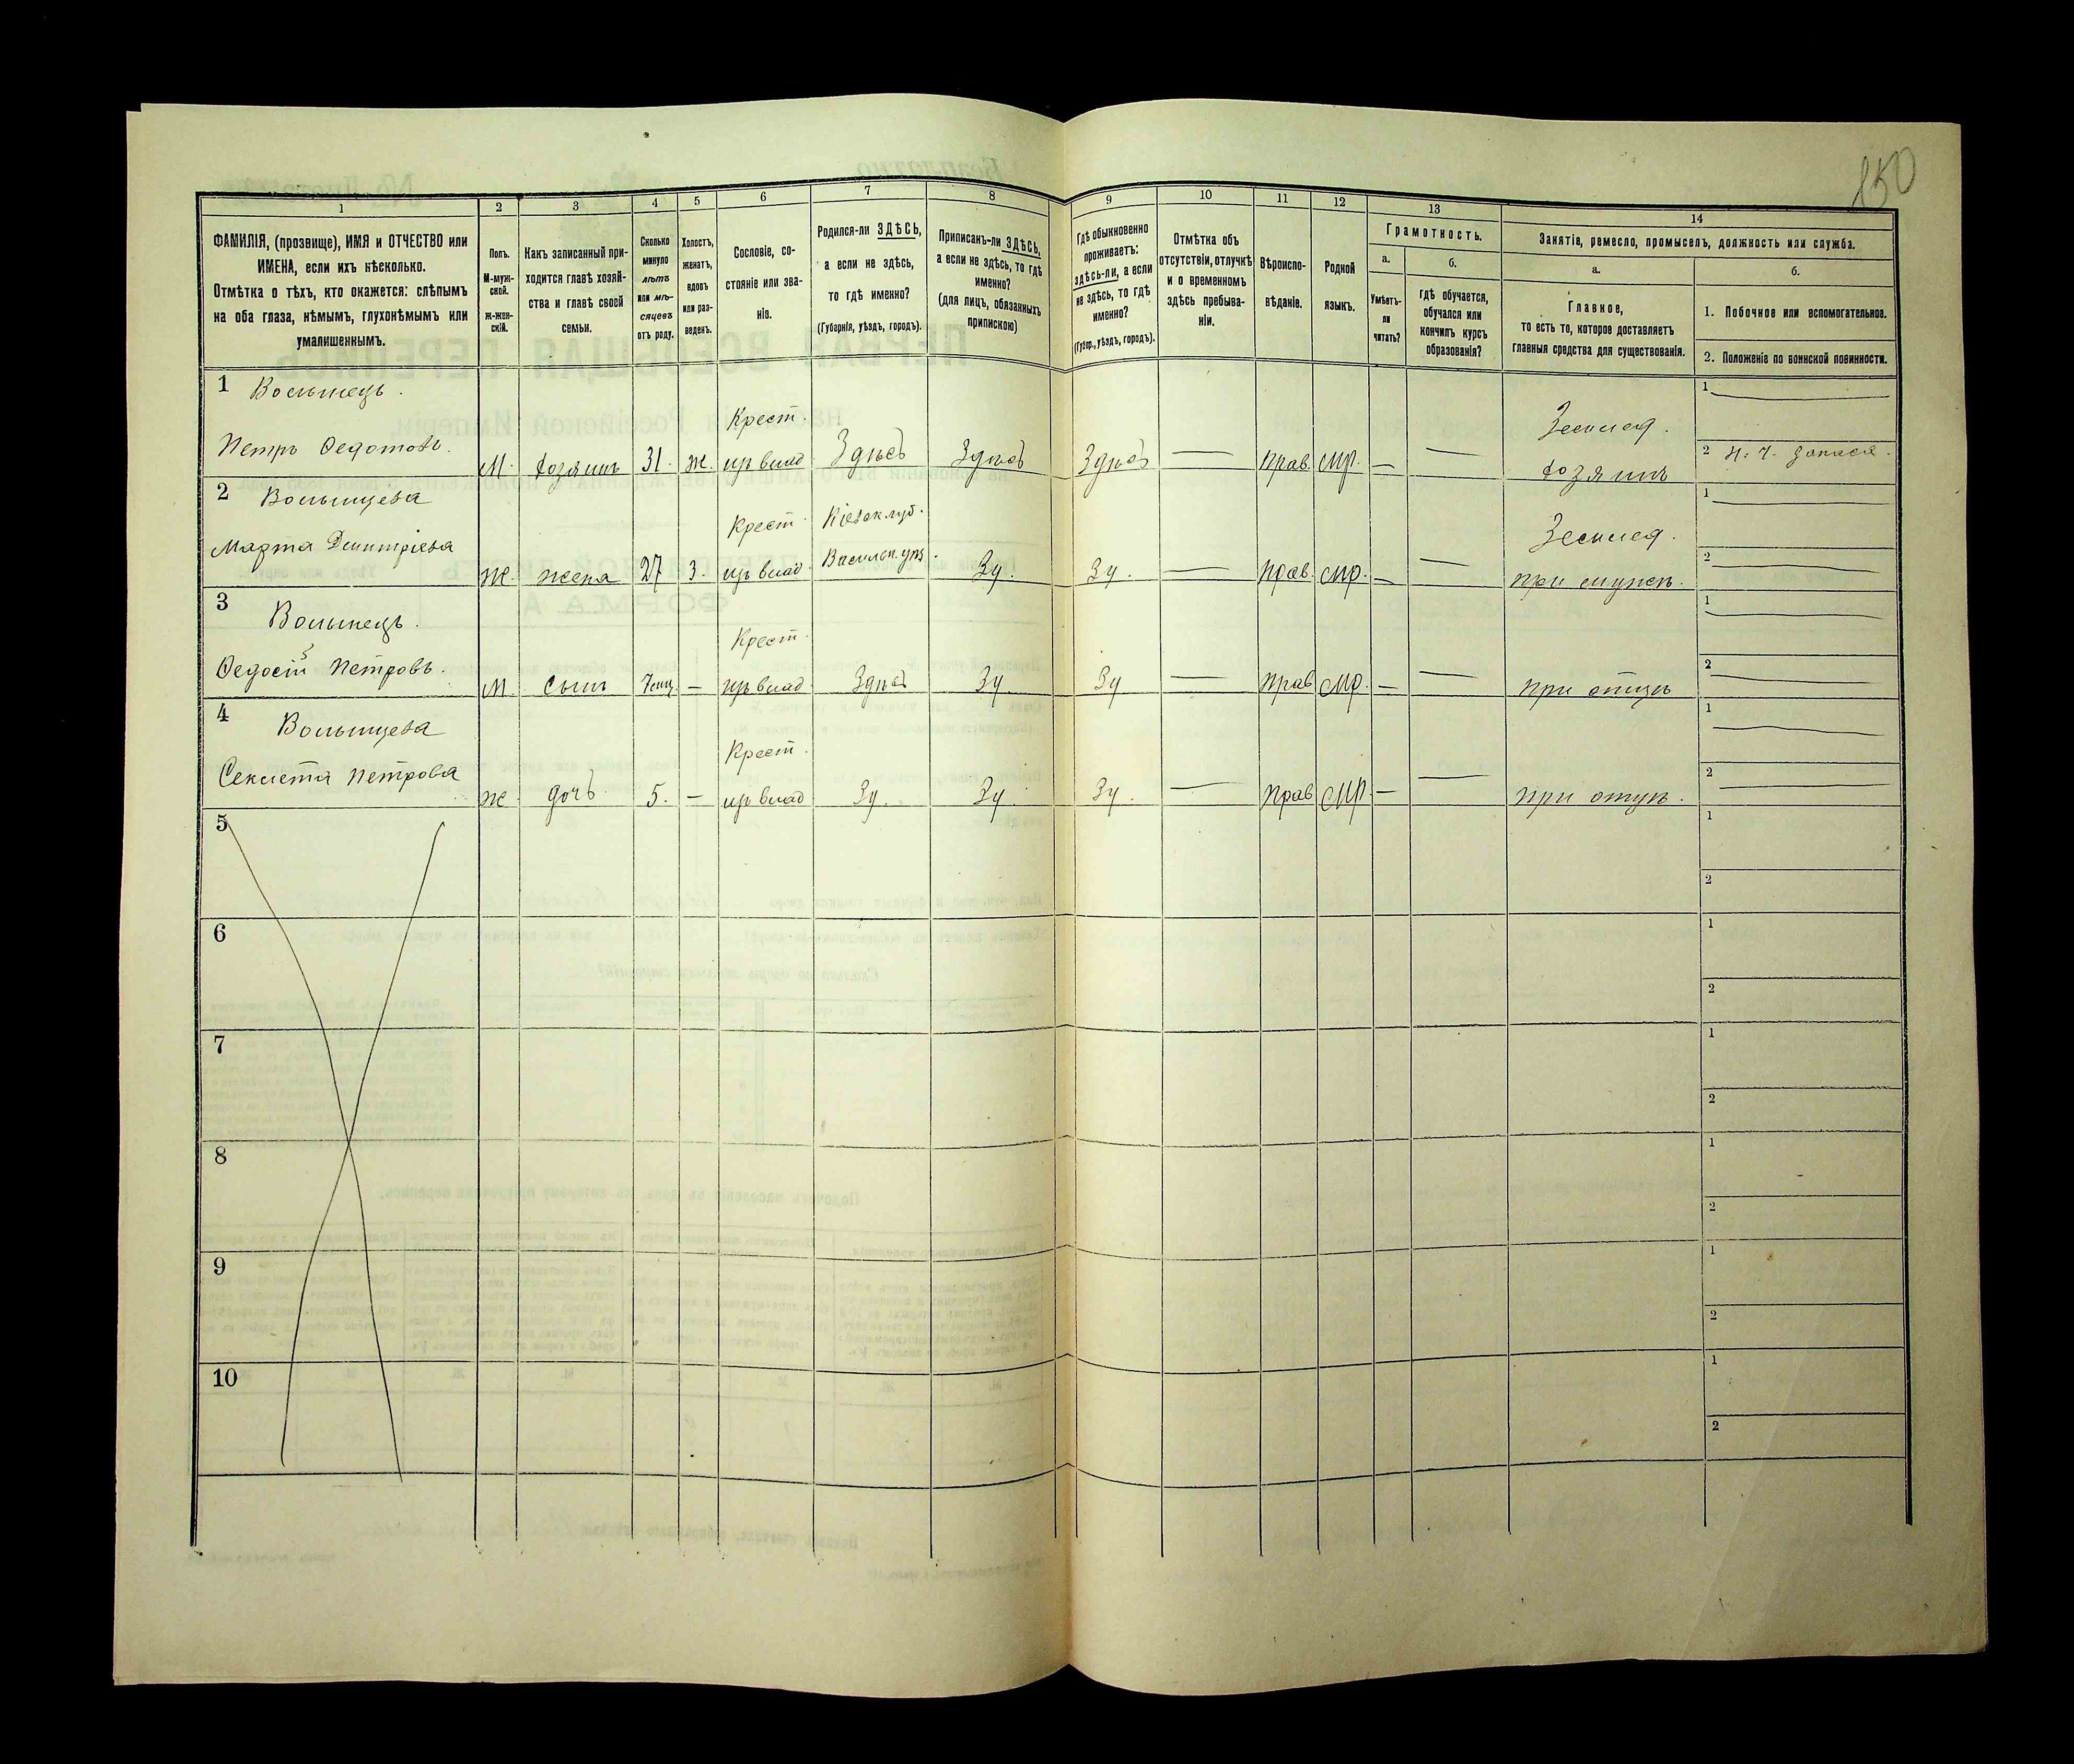 150
1 2 3 4 5 6 7 8 9 10 11 12 13 14
ФАМИЛІЯ, (прозвище), ИМЯ и ОТЧЕСТВО или
ИМЕНА, если ихъ нѣсколько.
Отмѣтка о тѣхъ, кто окажется: слѣпымъ
на оба глаза, нѣмымъ, глухонѣмымъ или
умалишеннымъ.
Полъ.
М-муж-
ской.
ж-жен-
скій.
Какъ записанный при-
ходится главѣ хозяй-
ства и главѣ своей
семьи.
Сколько
минуло
лѣтъ
или мѣ-
сяцевъ
отъ роду.
Холостъ,
женатъ,
вдовъ
или раз-
веденъ.
Сословіе, со-
стояніе или зва-
ніе.
Родился-ли ЗДѢСЬ,
а если не здѣсь,
то гдѣ именно?
(Губернія, уѣздъ, городъ).
Приписанъ-ли ЗДѢСЬ,
а если не здѣсь, то гдѣ
именно?
(для лицъ, обязанныхъ
припискою)
Гдѣ обыкновенно
проживаетъ:
здѣсь-ли, а если
не здѣсь, то гдѣ
именно?
(Губер., уѣздъ, городъ).
Отмѣтка объ
отсутствіи, отлучкѣ
и о временномъ
здѣсь пребыва-
ніи.
Вѣроиспо-
вѣданіе.
Родной
языкъ.
Грамотность.
а.
Умѣетъ-
ли
читать?
б.
гдѣ обучается,
обучался или
кончилъ курсъ
образованія?
Занятіе, ремесло, промыселъ, должность или служба.
а.
Главное,
то есть то, которое доставляетъ
главныя средства для существованія.
б.
1. Побочное или вспомогательное.
2. Положеніе по воинской повинности.
1 Волынецъ.
Крест. Землед. 1
Петръ Федотовъ. М. хозяинъ 31. ж. изъ влад. Здѣсь Здѣсь Здѣсь — прав. мр. — — хозяинъ 2 н. ч. запаса.
2 Волынцева
Крест. Кіевск. губ. Землед. 1
Марта Дмитріева Ж. жена 27 З. изъ влад. Василск. уѣз. Зд. Зд. — прав. мр. — — при мужѣ. 2
3 Волынецъ.
Крест. 1
Федосій Петровъ. М. сынъ 7 мц. — изъ влад. Здѣсь Зд. Зд — прав мр. — — при отцѣ 2
4 Волынцева
Крест. 1
Секлета Петрова ж. дочь 5. — изъ влад Зд. Зд. Зд. — прав мр. — — при отцѣ. 2
5 1
2
6 1
2
7 1
2
8 1
2
9 1
2
10 1
2